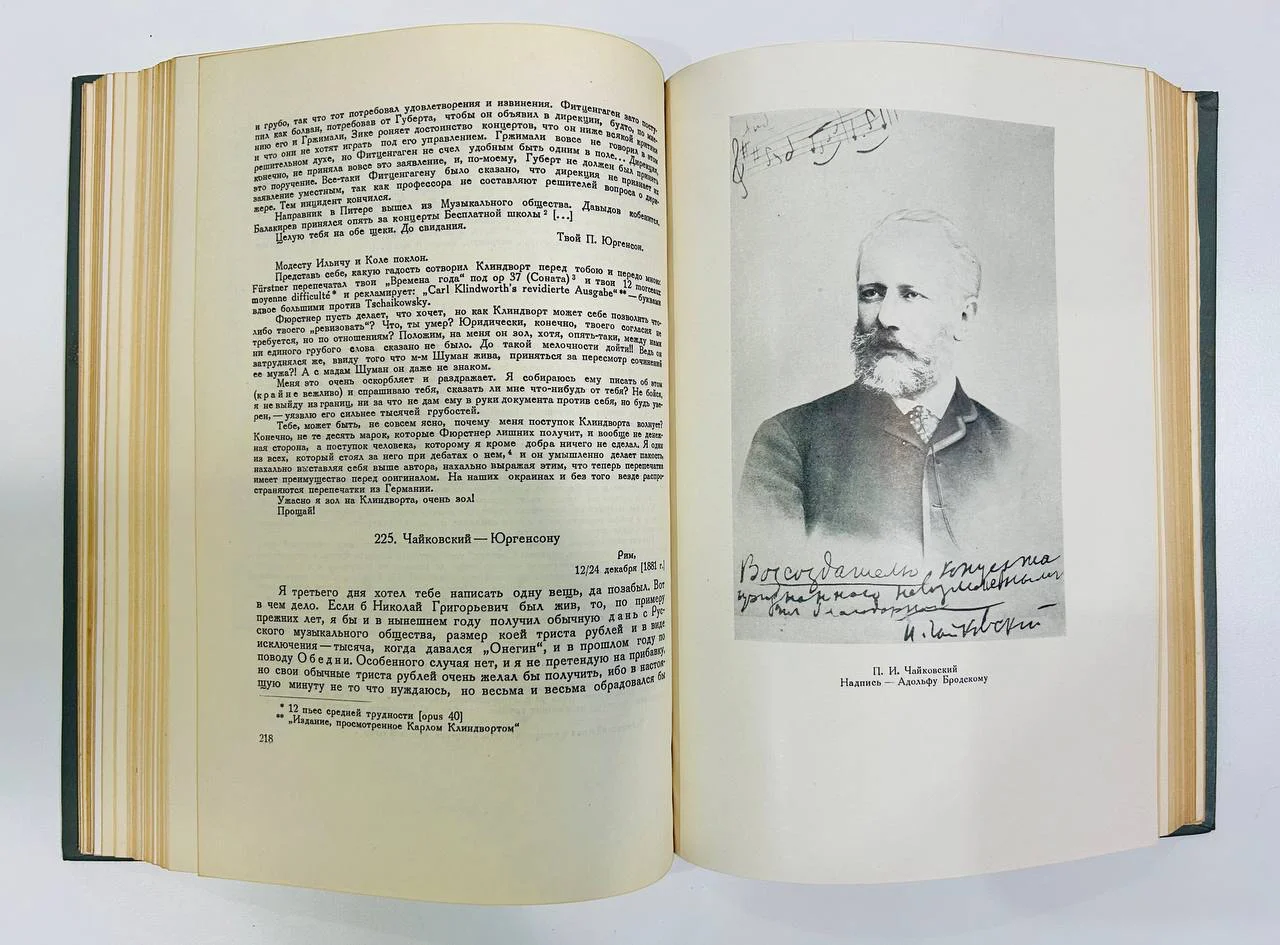 и грубо, так что тот потребовал удовлетворения и извинения. Фитценгаген зато посту-
пил как болван, потребовав от Губерта, чтобы он объявил в дирекции, будто, по мне-
нию его и Гржимали, Зике роняет достоинство концертов, что он ниже всякой критики
и что они не хотят играть под его управлением. Гржимали вовсе не говорил в этом
решительном духе, но Фитценгаген не счел удобным быть одним в поле... Дирекция,
конечно, не приняла вовсе это заявление, и, по-моему, Губерт не должен был принять
это поручение. Все-таки Фитценгагену было сказано, что дирекция не признает их
заявление уместным, так как профессора не составляют решителей вопроса о дири-
жере. Тем инцидент кончился.
Направник в Питере вышел из Музыкального общества. Давыдов кобенится,
Балакирев принялся опять за концерты Бесплатной школы ² [...]
Целую тебя на обе щеки. До свидания.
Твой П. Юргенсон.
Модесту Ильичу и Коле поклон.
Представь себе, какую гадость сотворил Клиндворт перед тобою и передо мною:
Fürstner перепечатал твои „Времена года" под ор 37 (Соната) ³ и твои 12 morceaux
moyenne difficulté * и рекламирует: „Carl Klindworth's revidierte Ausgabe" ** — буквами
вдвое большими против Tschaikowsky.
Фюрстнер пусть делает, что хочет, но как Клиндворт может себе позволить что-
либо твоего „ревизовать"? Что, ты умер? Юридически, конечно, твоего согласия не
требуется, но по отношениям? Положим, на меня он зол, хотя, опять-таки, между нами
ни единого грубого слова сказано не было. До такой мелочности дойти!! Ведь он
затруднялся же, ввиду того что м-м Шуман жива, приняться за пересмотр сочинений
ее мужа?! А с мадам Шуман он даже не знаком.
Меня это очень оскорбляет и раздражает. Я собираюсь ему писать об этом
(крайне вежливо) и спрашиваю тебя, сказать ли мне что-нибудь от тебя? Не бойся,
я не выйду из границ, ни за что не дам ему в руки документа против себя, но будь уве-
рен, — уязвлю его сильнее тысячей грубостей.
Тебе, может быть, не совсем ясно, почему меня поступок Клиндворта волнует?
Конечно, не те десять марок, которые Фюрстнер лишних получит, и вообще не денеж-
ная сторона, а поступок человека, которому я кроме добра ничего не сделал. Я один
из всех, который стоял за него при дебатах о нем, ⁴ и он умышленно делает пакость,
нахально выставляя себя выше автора, нахально выражая этим, что теперь перепечатка
имеет преимущество перед оригиналом. На наших окраинах и без того везде распро-
страняются перепечатки из Германии.
Ужасно я зол на Клиндворта, очень зол!
Прощай!
225. Чайковский — Юргенсону
Рим,
12/24 декабря [1881 г.]
Я третьего дня хотел тебе написать одну вещь, да позабыл. Вот
в чем дело. Если б Николай Григорьевич был жив, то, по примеру
прежних лет, я бы и в нынешнем году получил обычную дань с Рус-
ского музыкального общества, размер коей триста рублей и в виде
исключения — тысяча, когда давался „Онегин", и в прошлом году по
поводу Обедни. Особенного случая нет, и я не претендую на прибавку,
но свои обычные триста рублей очень желал бы получить, ибо в настоя-
щую минуту не то что нуждаюсь, но весьма и весьма обрадовался бы
* 12 пьес средней трудности [opus 40]
** „Издание, просмотренное Карлом Клиндвортом"
218
Воссоздателю концерта
признанного невозможным
от благодарного
П. Чайковский
П. И. Чайковский
Надпись — Адольфу Бродскому